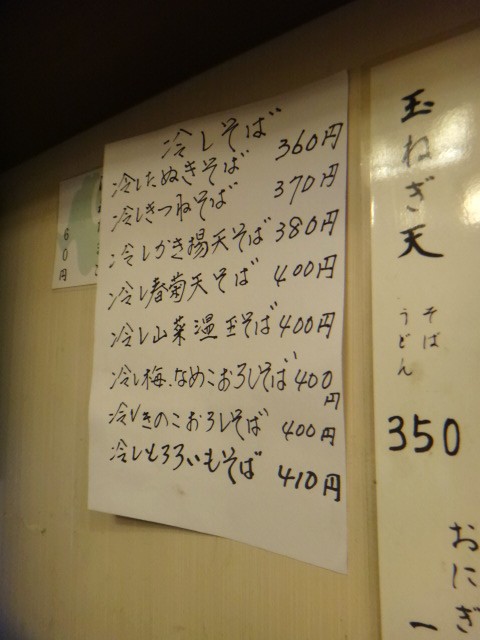 冷しそば
冷したぬきそば 360円
冷しきつねそば 370円
冷しかき揚天そば 380円
冷し春菊天そば 400円
冷し山菜温玉そば 400円
冷し梅、なめこおろしそば 400円
冷しきのこおろしそば 400円
冷しとろろいもそば 410円
玉ねぎ天
そば
うどん
350
おにぎ
60円